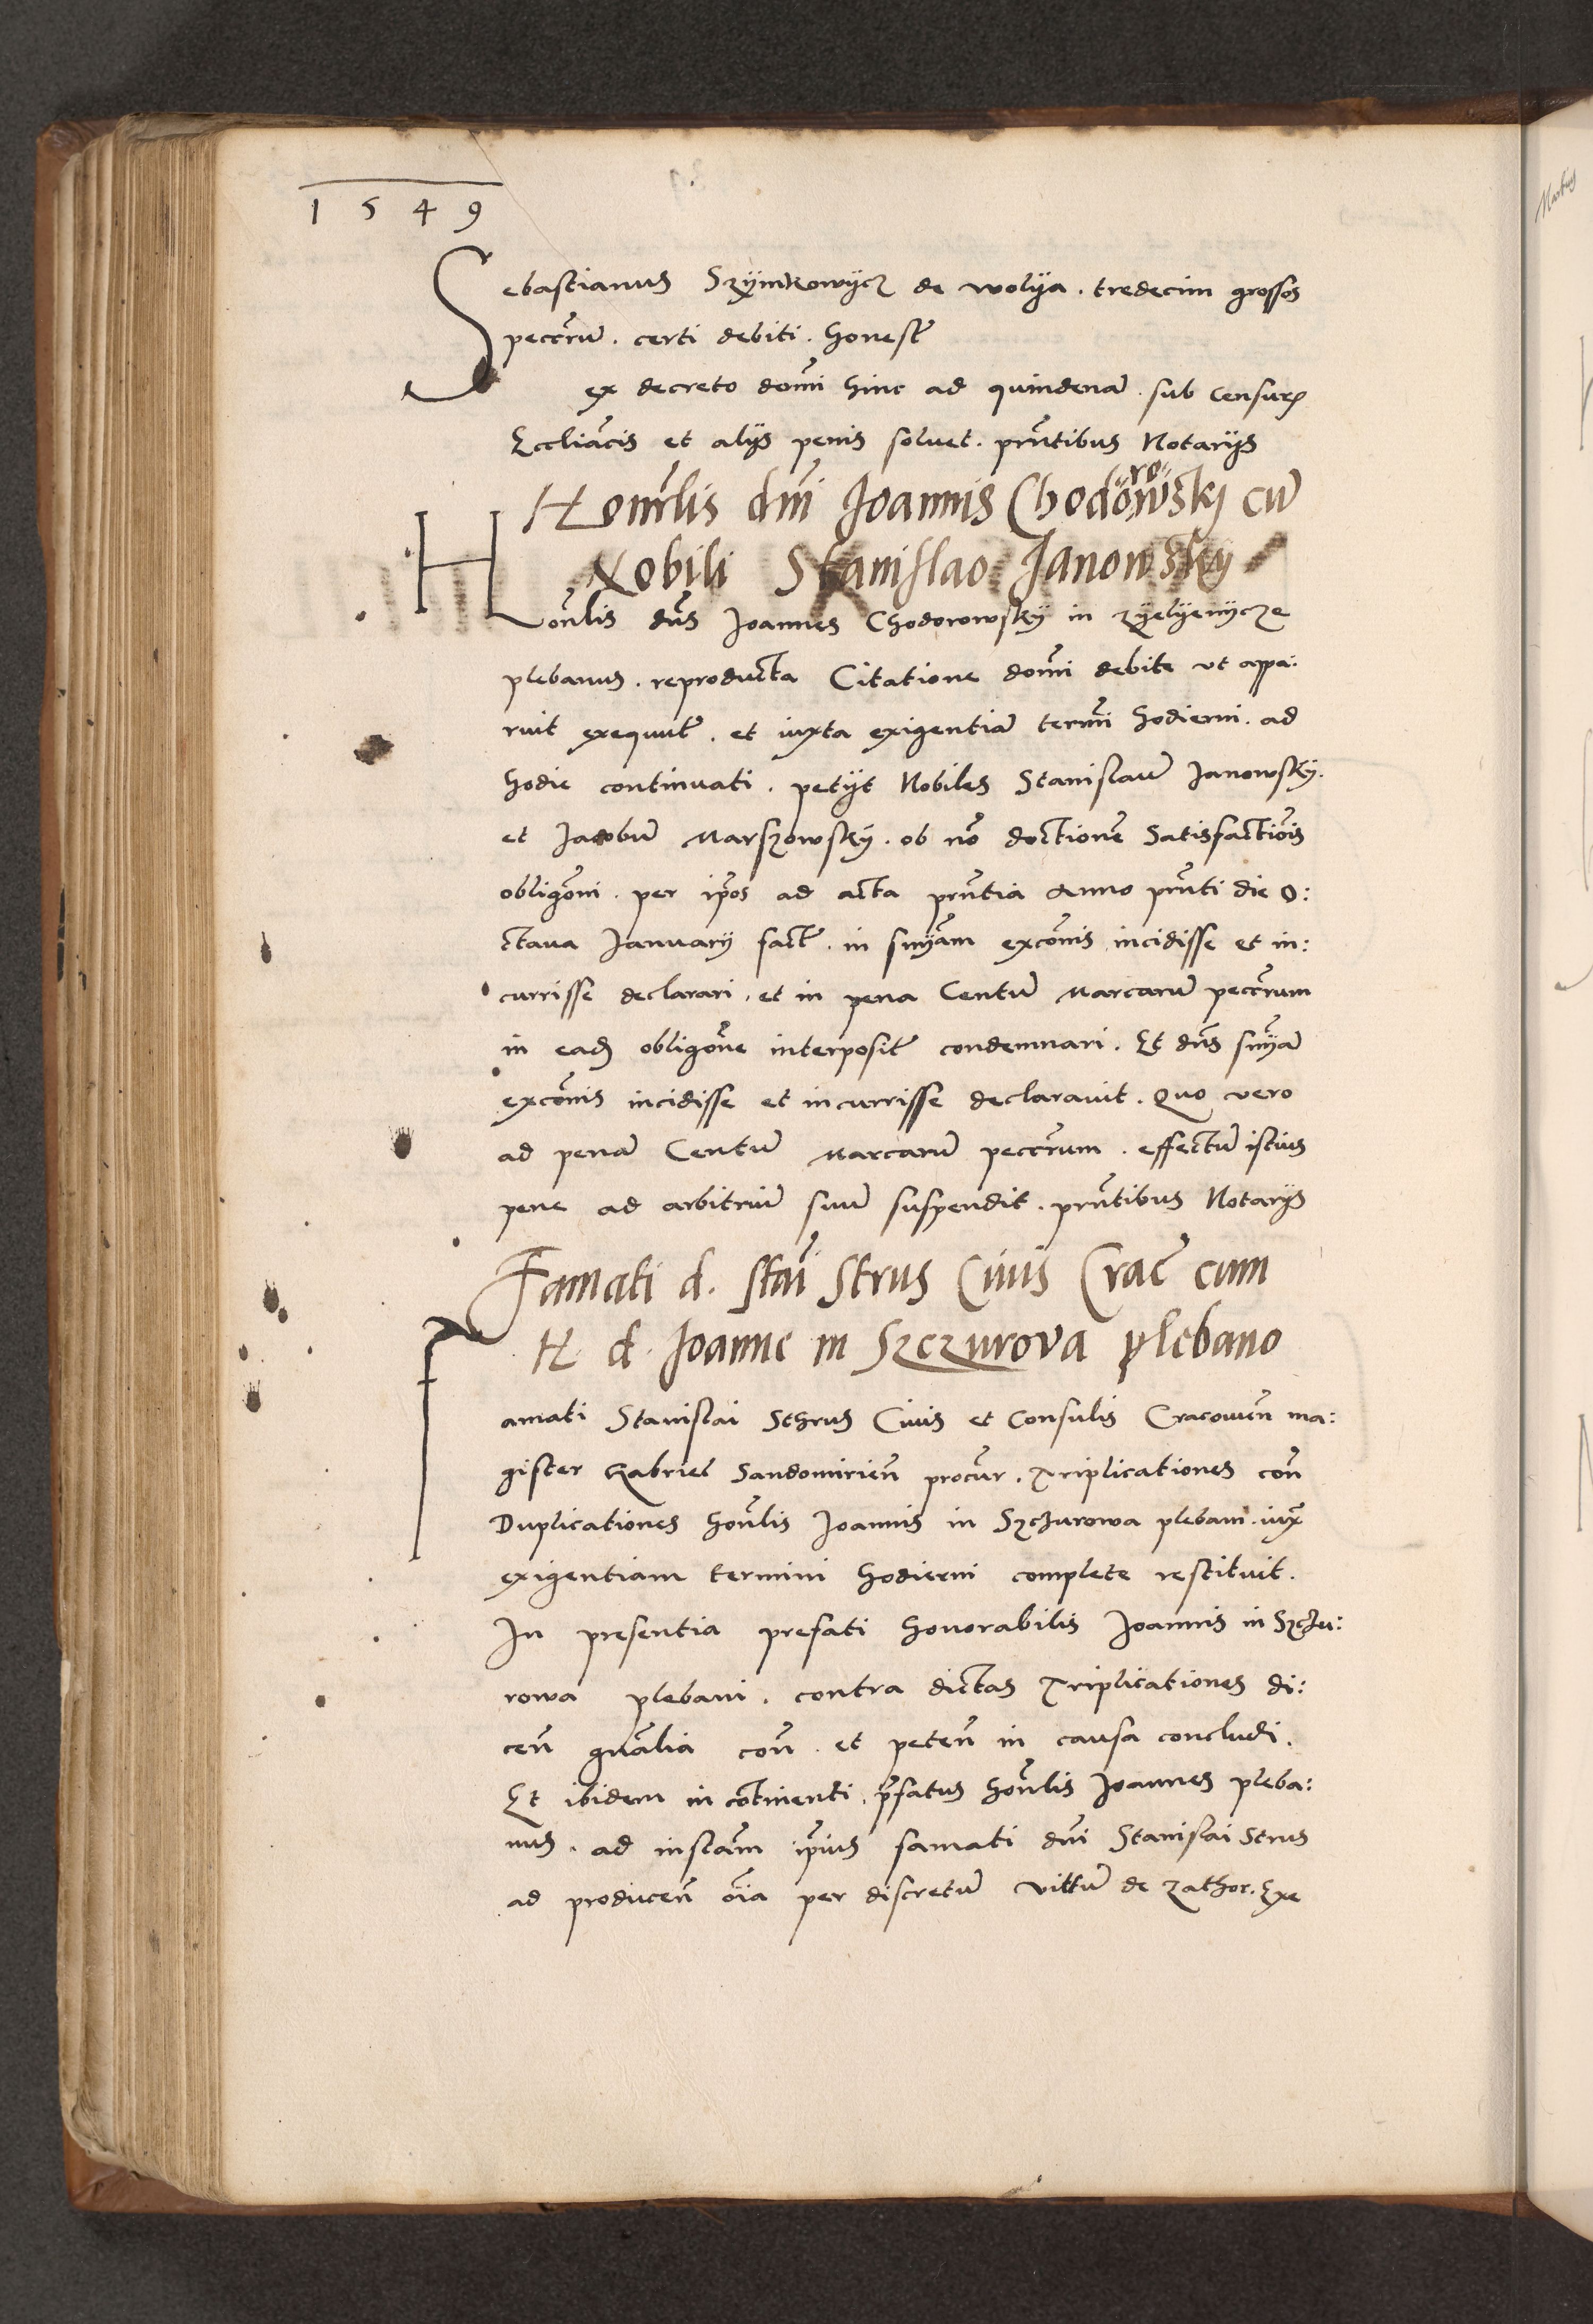 1549
Sebastianus Szymkowycz de wolya . tredecim grossos
peccrum̄ . certi debiti . honest̄
ex decreto domī hinc ad quindenā . sub Censuris
Eccliācis et alijs penis soluet . prn̄tibus Notarijs
Honrlis dnī Joannis Chodorowskj cū
Nobili Stanislao Janowsky
Honr̄lis dn̄s Joannes Chodorowsky in zyelyenycze
plebanus . reproducta Citatione domī debite vt appa:
ruit exequut̄ . et iuxta exigentiā termī hodierni . ad
hodie continuati . petijt Nobiles Stanislaū Janowsky .
et Jacobū Marszowsky . ob nō doctionē Satisfactiōis
obligōni . per ip̄os ad acta prn̄tia Anno prn̄ti die O:
ctaua Januarij fact̄ . in snīam excōnis incidisse et in:
currisse declarari . et in pena Centū Marcarū peccrum
in eadē obligōne interposit̄ condemnari . Et dn̄s snīam
excōnis incidisse et incurrisse declarauit . Quo vero
ad penā Centū Marcarū peccrum . effectū istius
pene ad arbitriū suū suspendit . prn̄tibus Notarijs
Famati d. Stāi Strus Ciuis Crac̄ cum
H. d. Joanne in Szczurova plebano
Famati Stanislai Sthrus Ciuis et Consulis Cracouien̄ ma:
gister Gabriel Sandomirien̄ procur̄ . Triplicationes con̄
Duplicationes honr̄lis Joannis in Szczurowa plebani . iux̄
exigentiam termini hodierni complete restituit .
In presentia prefati honorabilis Joannis in Szczu:
rowa plebani . contra dictas Triplicationes di:
cen̄ gn̄alia con̄ . et peten̄ in causa concludi .
Et ibidem in cōtinenti . p̄fatus honr̄lis Joannes pleba:
nus . ad instām ip̄ius famati dn̄i Stanislai Strus
ad producen̄ oīa per discretū vittū de zathor . Exe